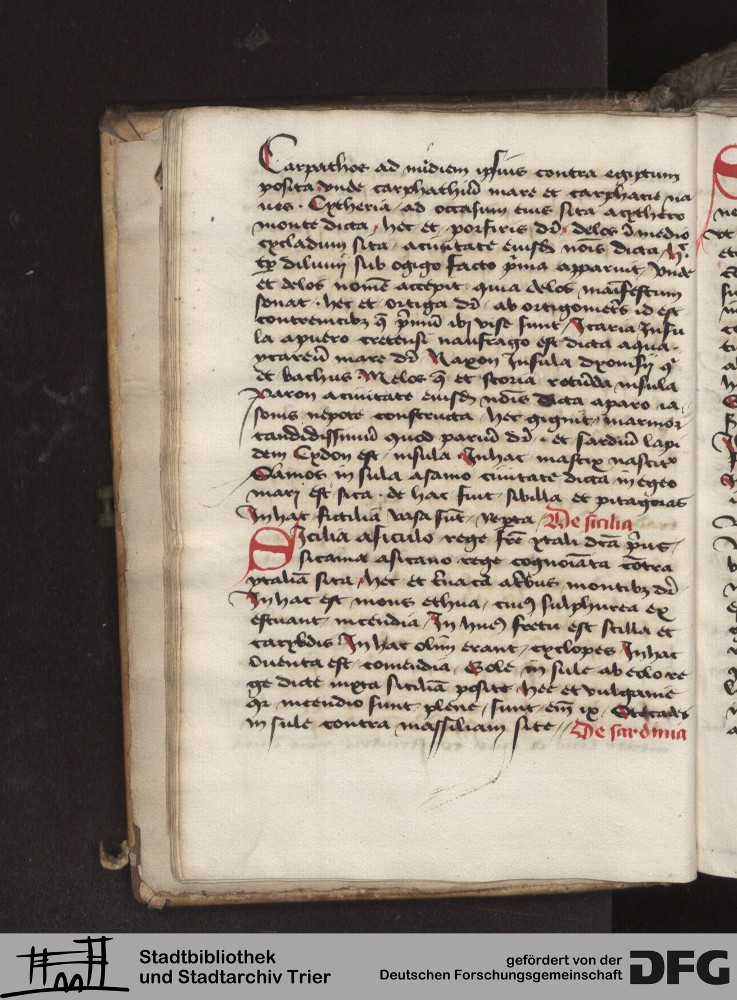 Carpathos ad midiem ipsius contra egiptum
posita vnde carphathiū mare et carphatie na
ues . Cytheria ad occasum eius sita acythero
monte dicta , hec et porfiris dr̄ . delos ī medio
cycladum sita . aciuitate eiusdē nōis dicta .
diluuij sub ogigo facto p̄ima apparuit . vnde
et delos nomē accepit quia delos maīfestum
sonat . hec et ortiga dr̄ . ab ortigometris id est
conturnicibus q̄ p̄mū ibi vise sunt / Icaria Insu
la apuero cretensi naufrago est dicta aqua .
ycareū mare dr̄ Naxon Insula dyonisij
et bachus Melos q̄ et storia rotūda insula
Paron aciuitate eiusdē nōis dicta aparo ia
sonis nepote constructa . hec gignit marmor
candidissimū quod pariū dr̄ . et sardiū lapi
dem Cydon est insula Inhac mastix nascitur
Samos in sula asamo ciuitate dicta in egeo
mari est sita . de hac fuit sibilla et pitagoras
In hac fictilia vasa sūt De sicilia
SIcilia asiculo rege fr̄e ytali dc̄a p̄us
sicania asicano rege cognoīata cōtra
ytaliā sita , hec et t̄nac̄a atribus montibus dr̄
In hac est mons ethna . cuius sulphurea ex
estuant incendia . In huius fretu est scilla et
carybdis In hac olim erant cyclopes In hac
Inuenta est comedia . Eole in sule ab eolo re
ge dicte iuxta siciliā posite hee et vulganie
quia incendio sunt plene sunt em̄ ix . Stecades
in sule contra massiliam site // De sardinia
Stadtbibliothek
und Stadtarchiv Trier
gefördert von der
Deutschen Forschungsgemeinschaft
DFG